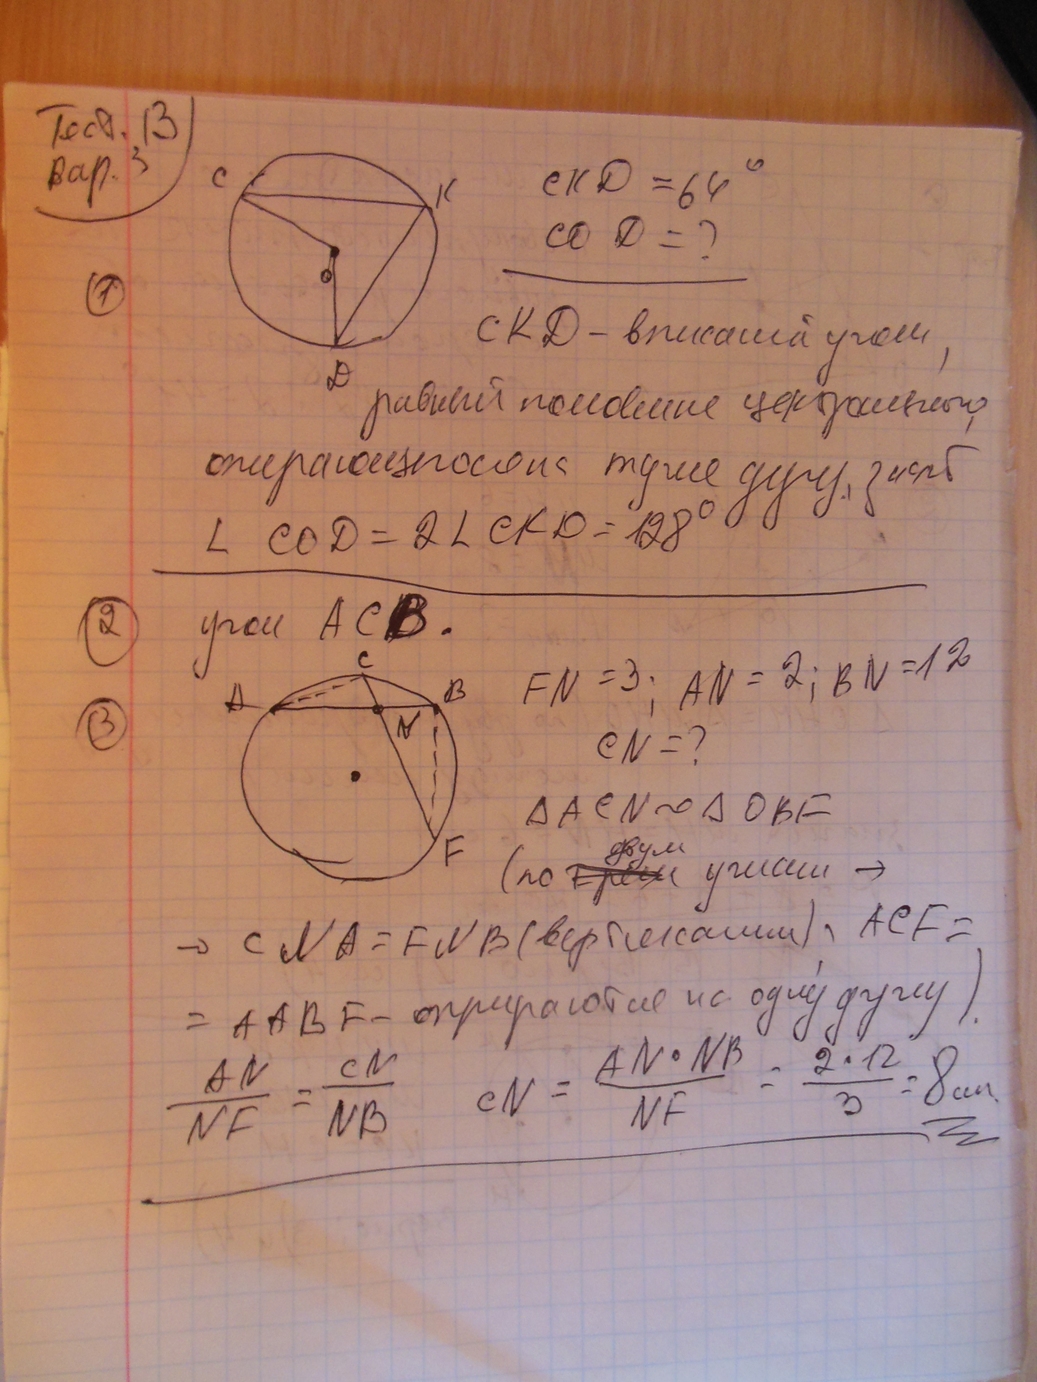 Тест. В
Вар. 3
С
К
О
D
CKD = 64°
COD = ?
1
CKD - вписаный угол,
равный половине центрального,
опирающегося на ту же дугу, знач
L COD = 2 L CKD = 128°
2 угол ACB.
3
A
C
B
N
F
FN = 3; AN = 2; BN = 12
CN = ?
Δ ACN ~ Δ OBF
двум
(по углам →
→ CNA = FNB (вертикальн), ACF =
= AABF - опираются на одну дугу).
AN/NF = CN/NB CN = AN • NB/NF = 2 • 12/3 = 8 см.